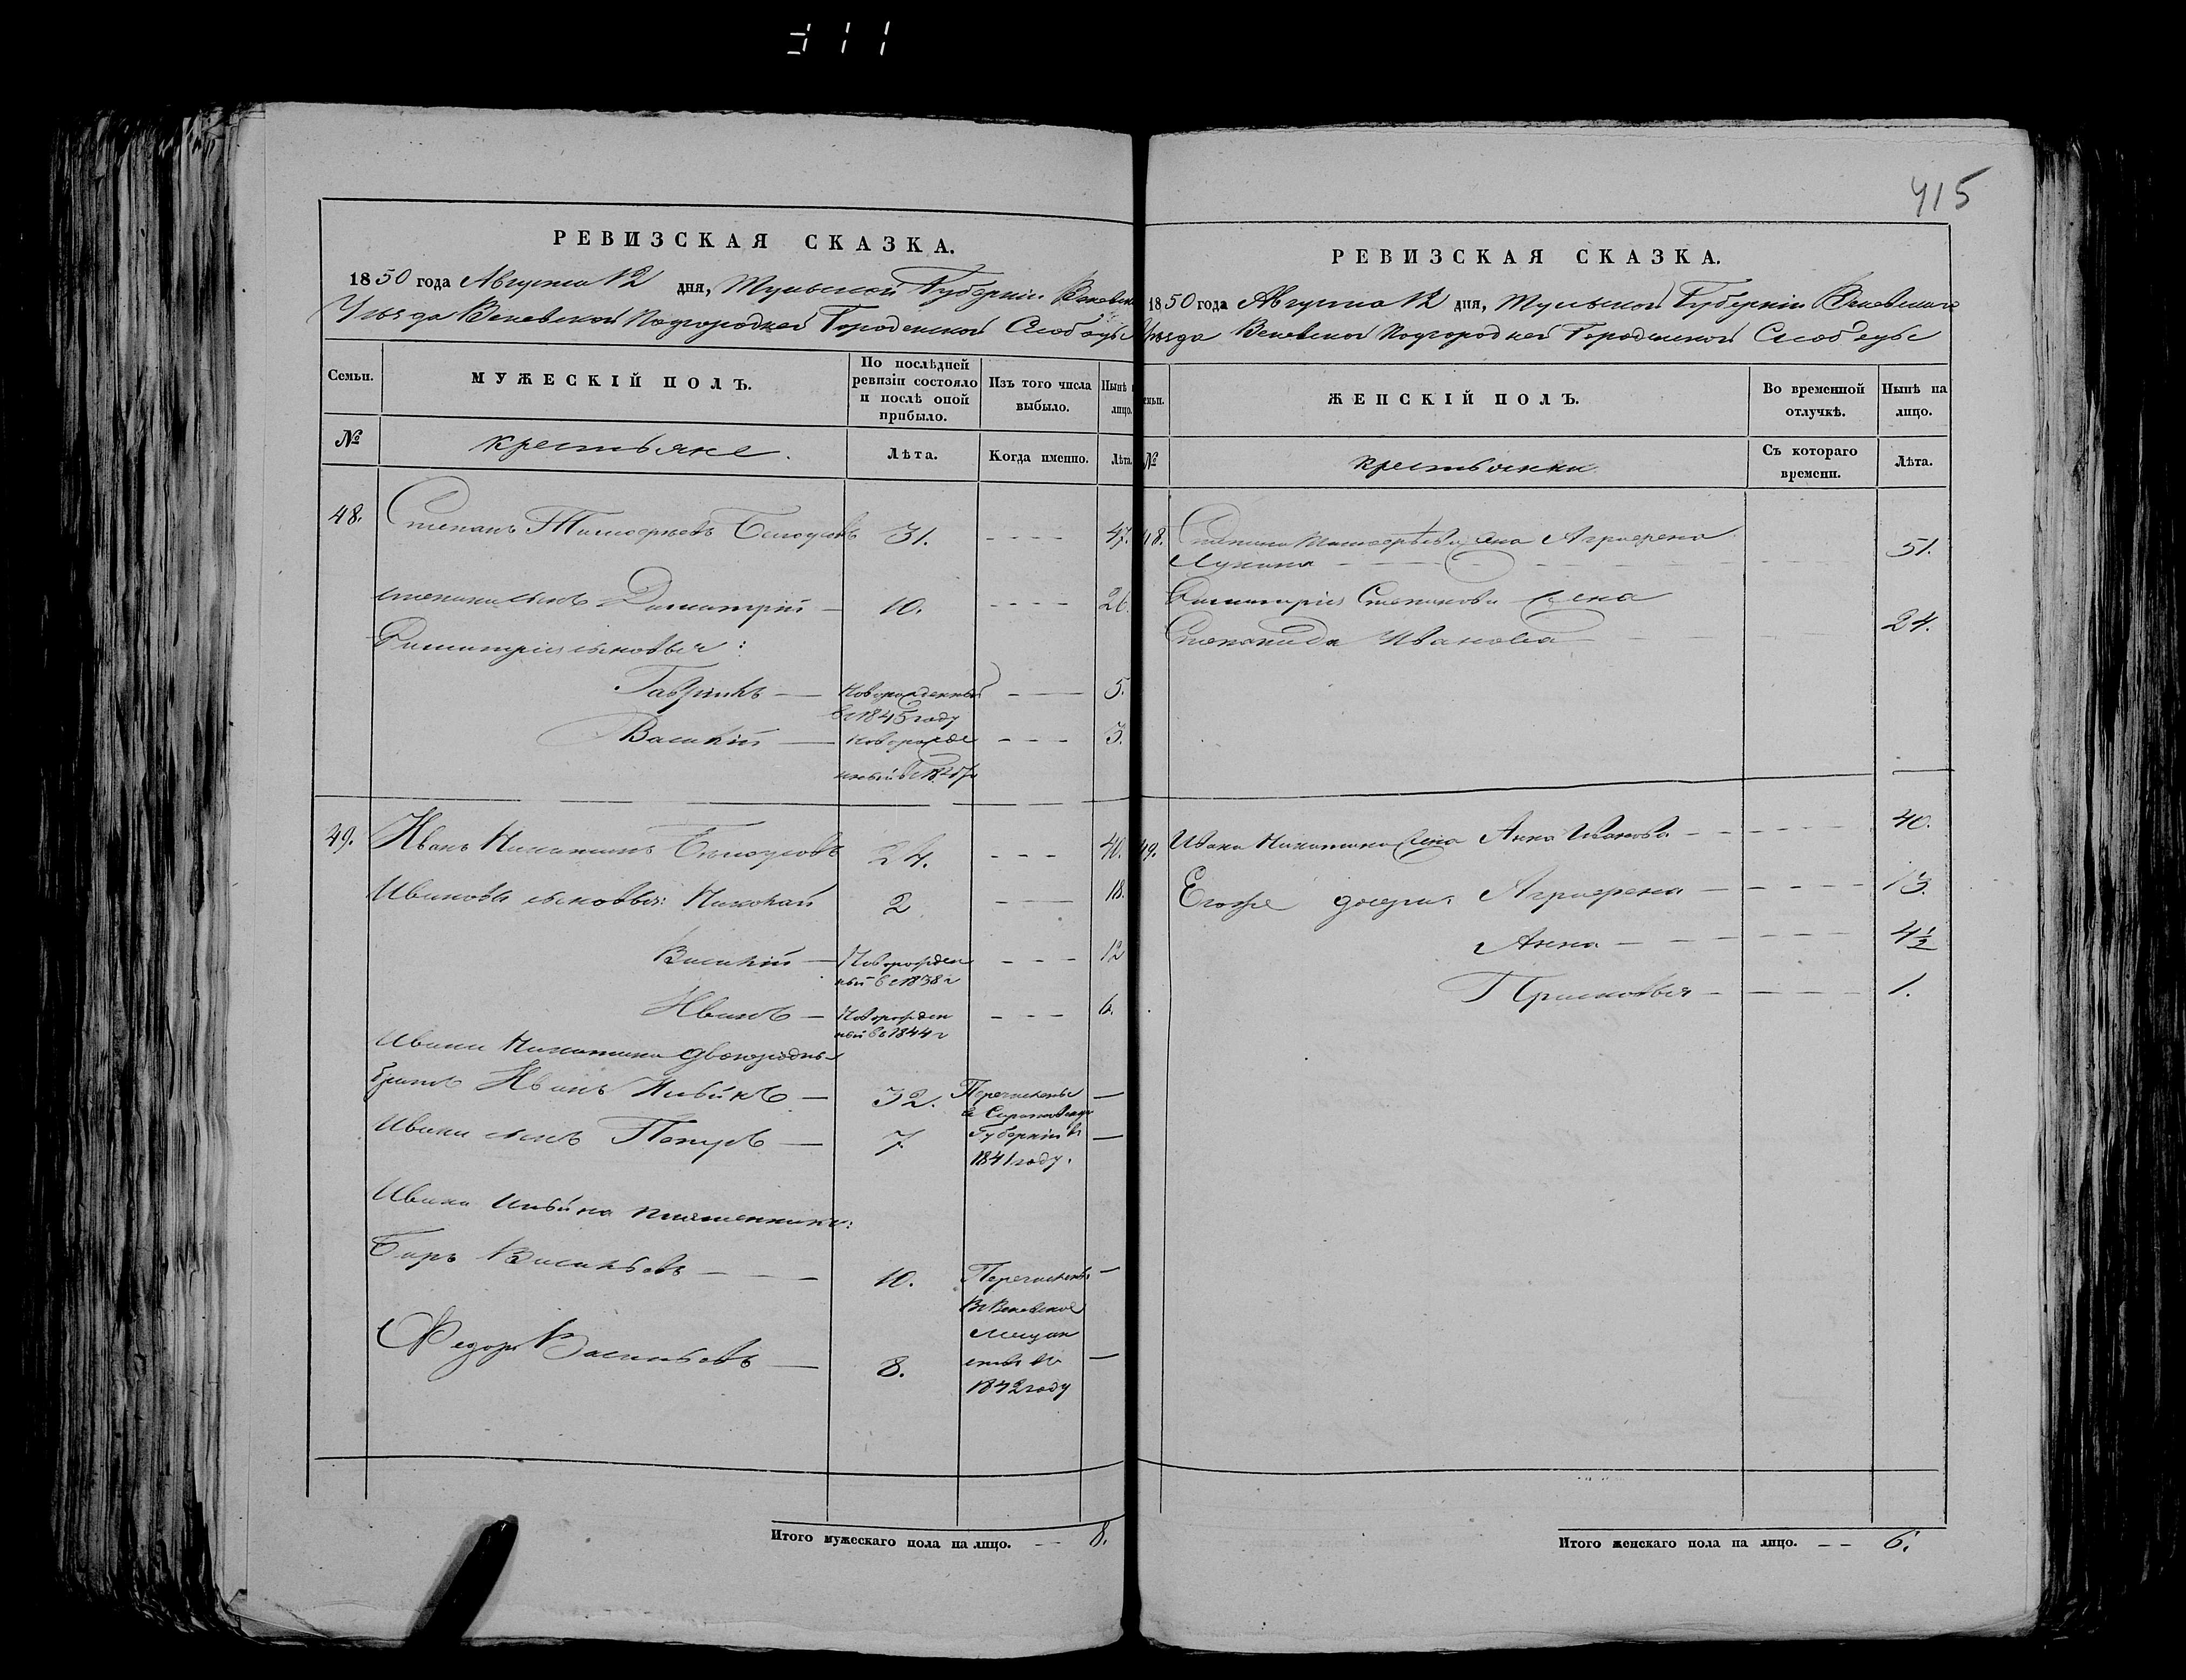 311
РЕВИЗСКАЯ СКАЗКА.
1850 года Августа 12 дня, Тульской Губернiи Веневска
Уѣзда Веневской Подгородней Городенской Слободы
Семьи.
МУЖЕСКIЙ ПОЛЪ.
По послѣдней ревизiи состояло и послѣ оной прибыло.
Изъ того числа выбыло.
Нынѣ на лицо.
№
крестьяне.
Лѣта.
Когда именно.
Лѣта.
48. Степанъ Тимофѣевъ Бѣлоусовъ 31. - - - - 47.
Степана сынъ Димитрiй — 10. - - - - 26.
Димитрiя сыновья:
Гаврiилъ — Новорожденный — — 5.
въ 1845 году
Василiй — новорожде - - - 3.
нный въ 1847 г
49. Иванъ Никитинъ Бѣлоусовъ 24. - - - 40.
Ивановы сыновья: Николай 2 - — 18.
Василiй — Новорожден - - - 12
ный въ 1838 г
Иванъ — Новорожден - - - 6.
ный въ 1844 г
Ивана Никитина двоюродны
братъ Иванъ Ильинъ — 32. Перечисленъ —
въ Саратовскую
Ивана сынъ Петръ — 7. Губернiю въ —
1841 году.
Ивана Ильина племянники:
Егоръ Васильевъ — — — 10. Перечислены —
въ Веневское
мещан
Федоръ Васильевъ — 8. ство въ —
1842 году
Итого мужескаго пола на лицо. — — 8.
415
РЕВИЗСКАЯ СКАЗКА.
1850 года Августа 12 дня, Тульской Губернiи Веневскаго
Уѣзда Веневской Подгородней Городенской Слободы
Семьи.
ЖЕНСКIЙ ПОЛЪ.
Во временной отлучкѣ.
Нынѣ на лицо.
№
крестьянки.
Съ котораго времени.
Лѣта.
48. Степана Тимофѣева жена Агрофена
Лукина — — — 51.
Димитрiя Степанова жена
Степанида Иванова — 24.
49. Ивана Никитина жена Анна Иванова — — — 40.
Егоже дочери: Агрофена — — — 13.
Анна — — — 4½
Прасковья — — — 1.
Итого женскаго пола на лицо. — — 6.